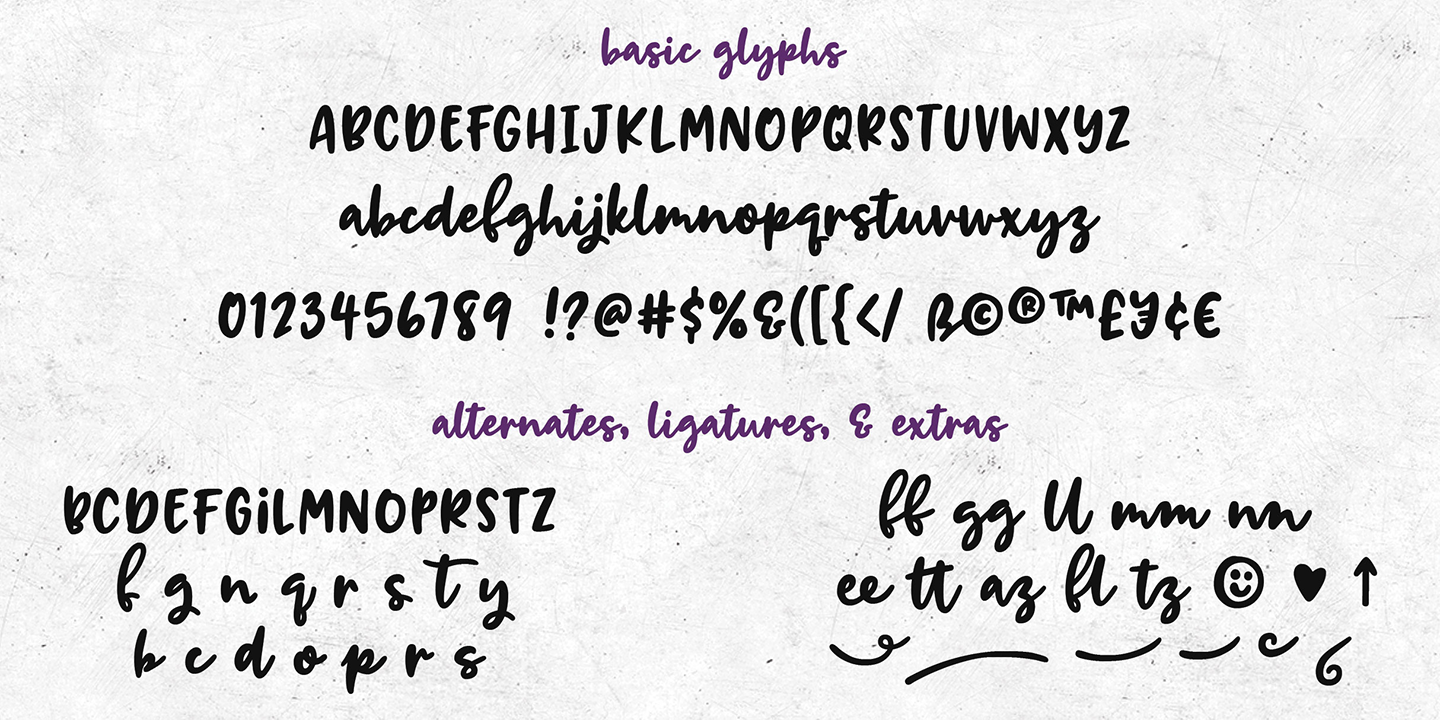 basic glyphs
ABCDEFGHIJKLMNOPQRSTUVWXYZ
abcdefghijklmnopqrstuvwxyz
0123456789 !?@#$%&([{</ ß©®™£¥¢€
alternates, ligatures, & extras
BCDEFGiLMNOPRSTZ
f g n q r s t y
b c d o p r s
ff gg ll mm nn
ee tt az fl tz ☺ ♥ ↑